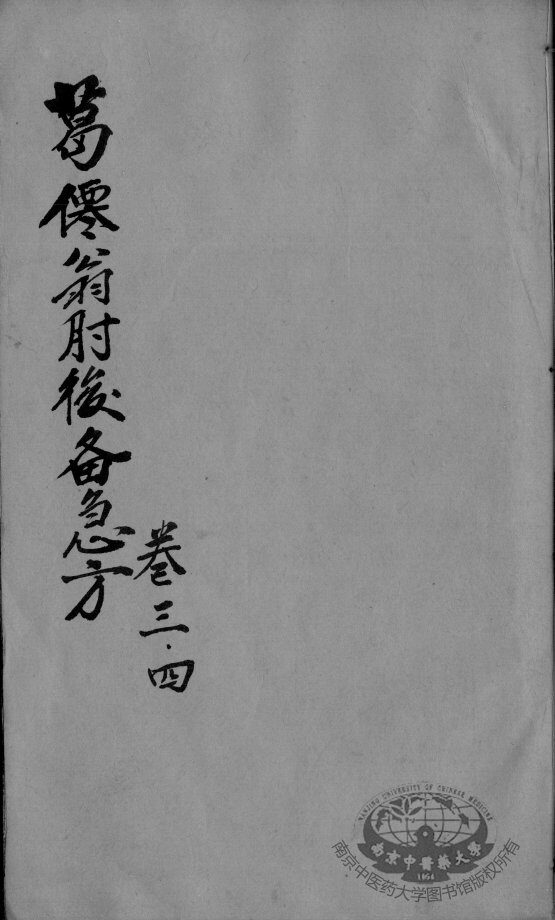 葛僊翁肘後备急方
卷三·四
NANJING UNIVERSITY OF CHINESE MEDICINE
南京中醫藥大學
1954
南京中医药大学图书馆版权所有